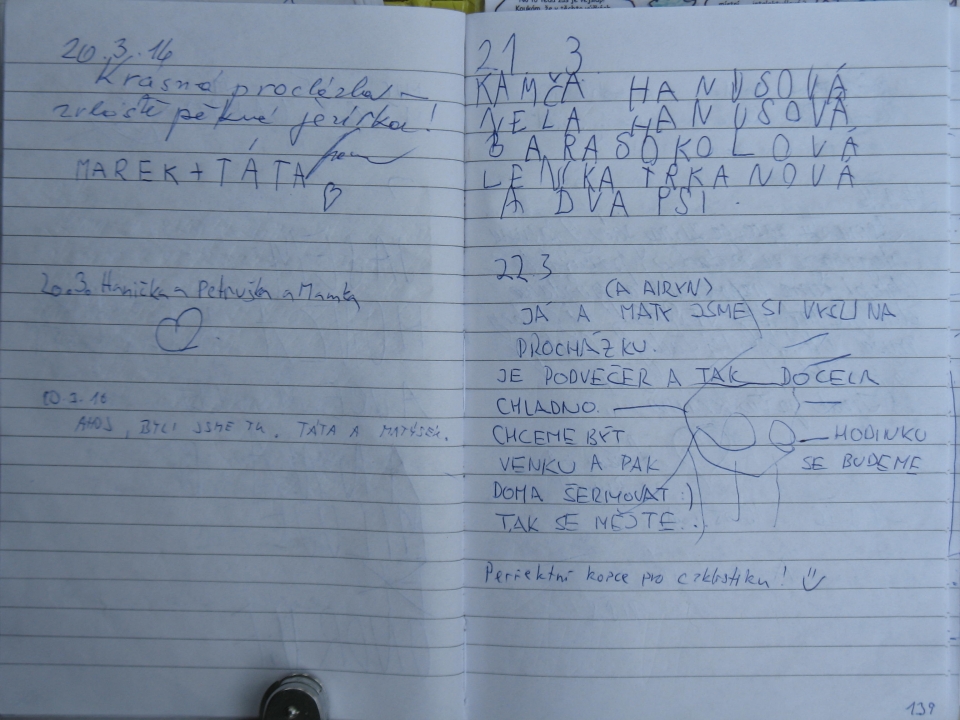 20.3.16
Krásná procházka –
zvláště pěkná jezírka!
MAREK + TÁTA
20.3. Hanička a Petruška a Mamka
20.3.16
AHOJ, BYLI JSME TU. TÁTA A MATÝSEK.
21 3
KAMČA HANUSOVÁ
NELA HANUSOVÁ
BARA SOKOLOVÁ
LENKA TRKANOVÁ
A DVA PSI.
22 3
(A AIRYN)
JÁ A MATY JSME SI VYŠLI NA
PROCHÁZKU.
JE PODVEČER A TAK DOCELA
CHLADNO.
CHCEME BÝT — HODINKU
VENKU A PAK SE BUDEME
DOMA ŠERMOVAT :)
TAK SE MĚJTE..
Perfektní kopce pro cyklistiku!
139